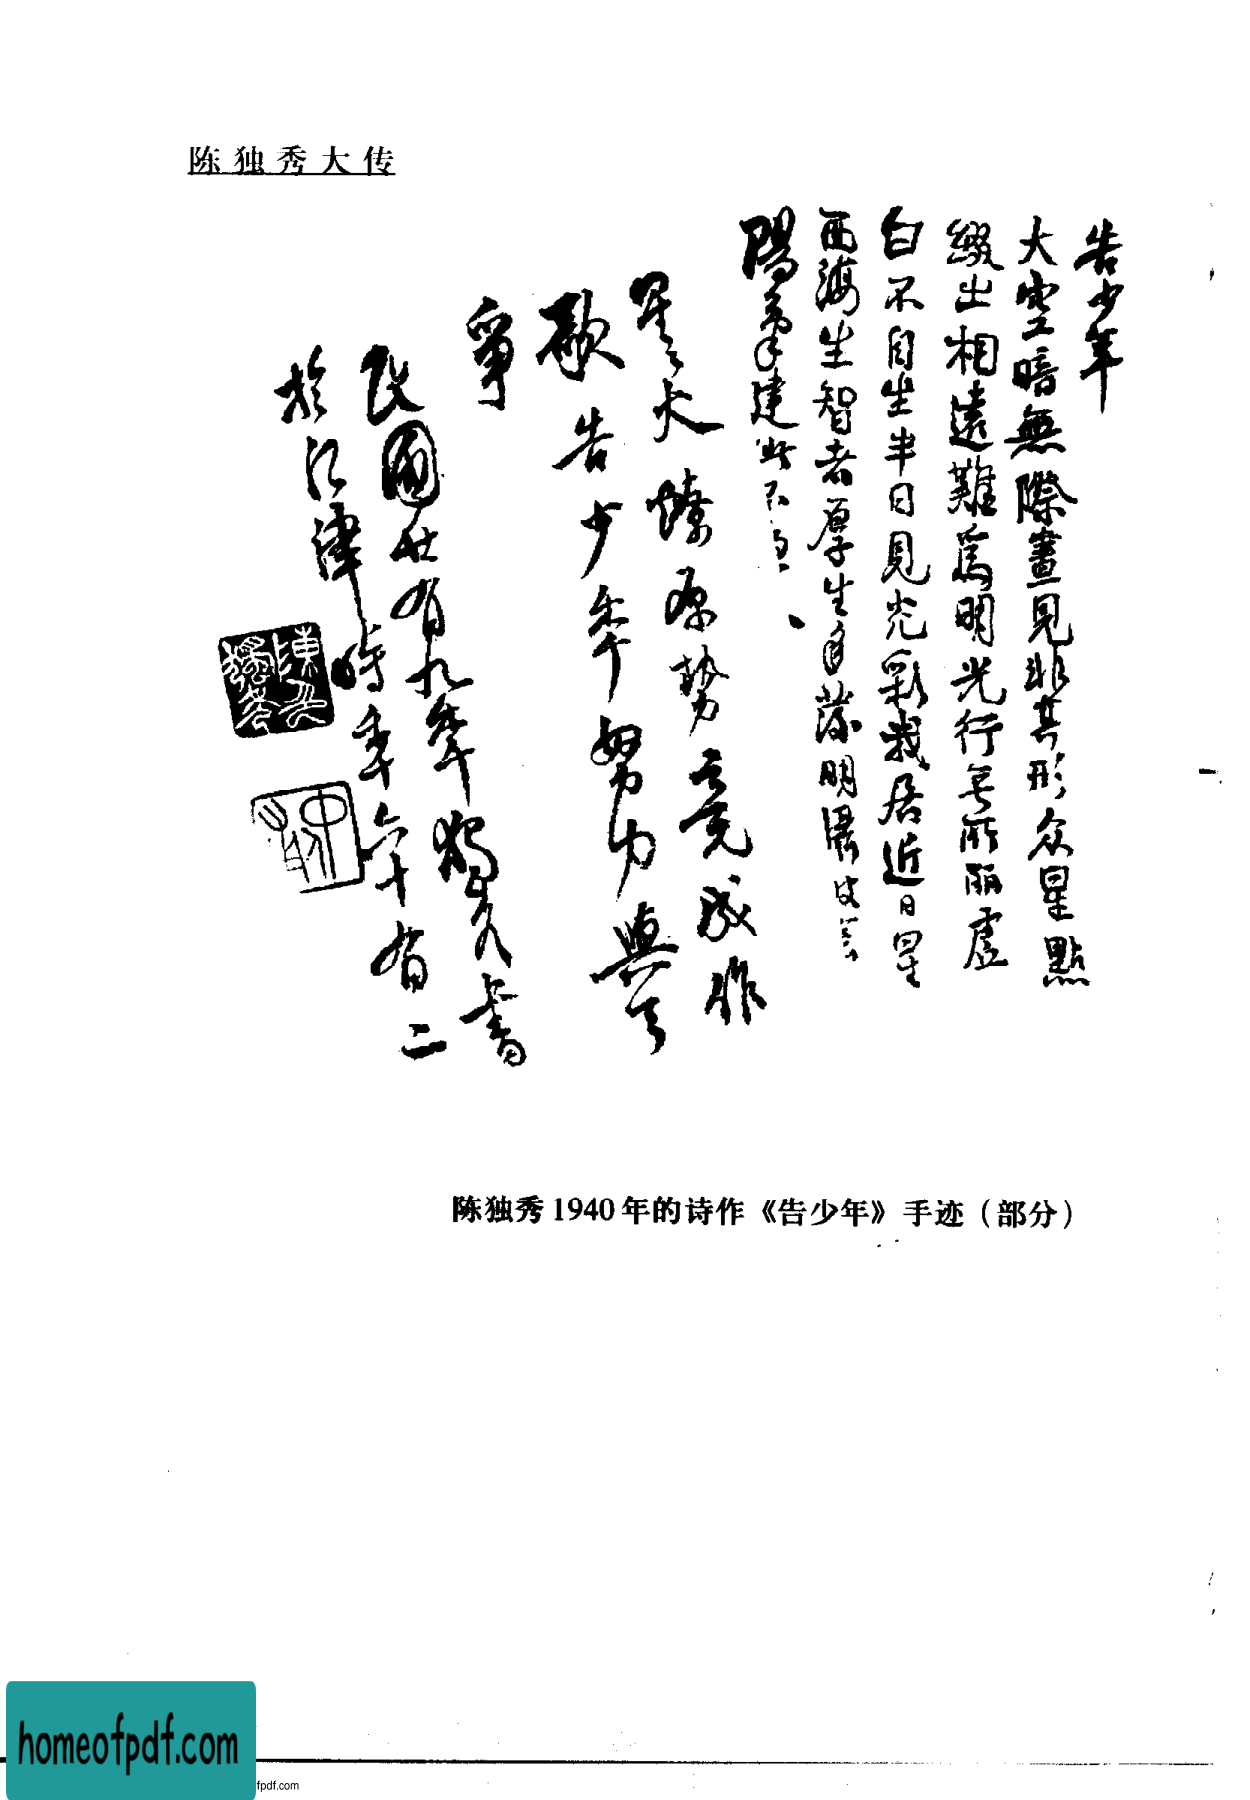 陈独秀大传
告少年
大空暗無際晝見非其形众星點
綴之相遠難爲明光行無所麗虛
白不自生半日見光彩我居近日星
西海生智者厚生多發明攝彼
陽氣建此不
星々火燎原勢竟成作
歌告少年努力與天
爭
民國廿有九年獨秀書
於江津時年六十有二
陈独秀1940年的诗作《告少年》手迹（部分）
homeofpdf.com
fpdf.com